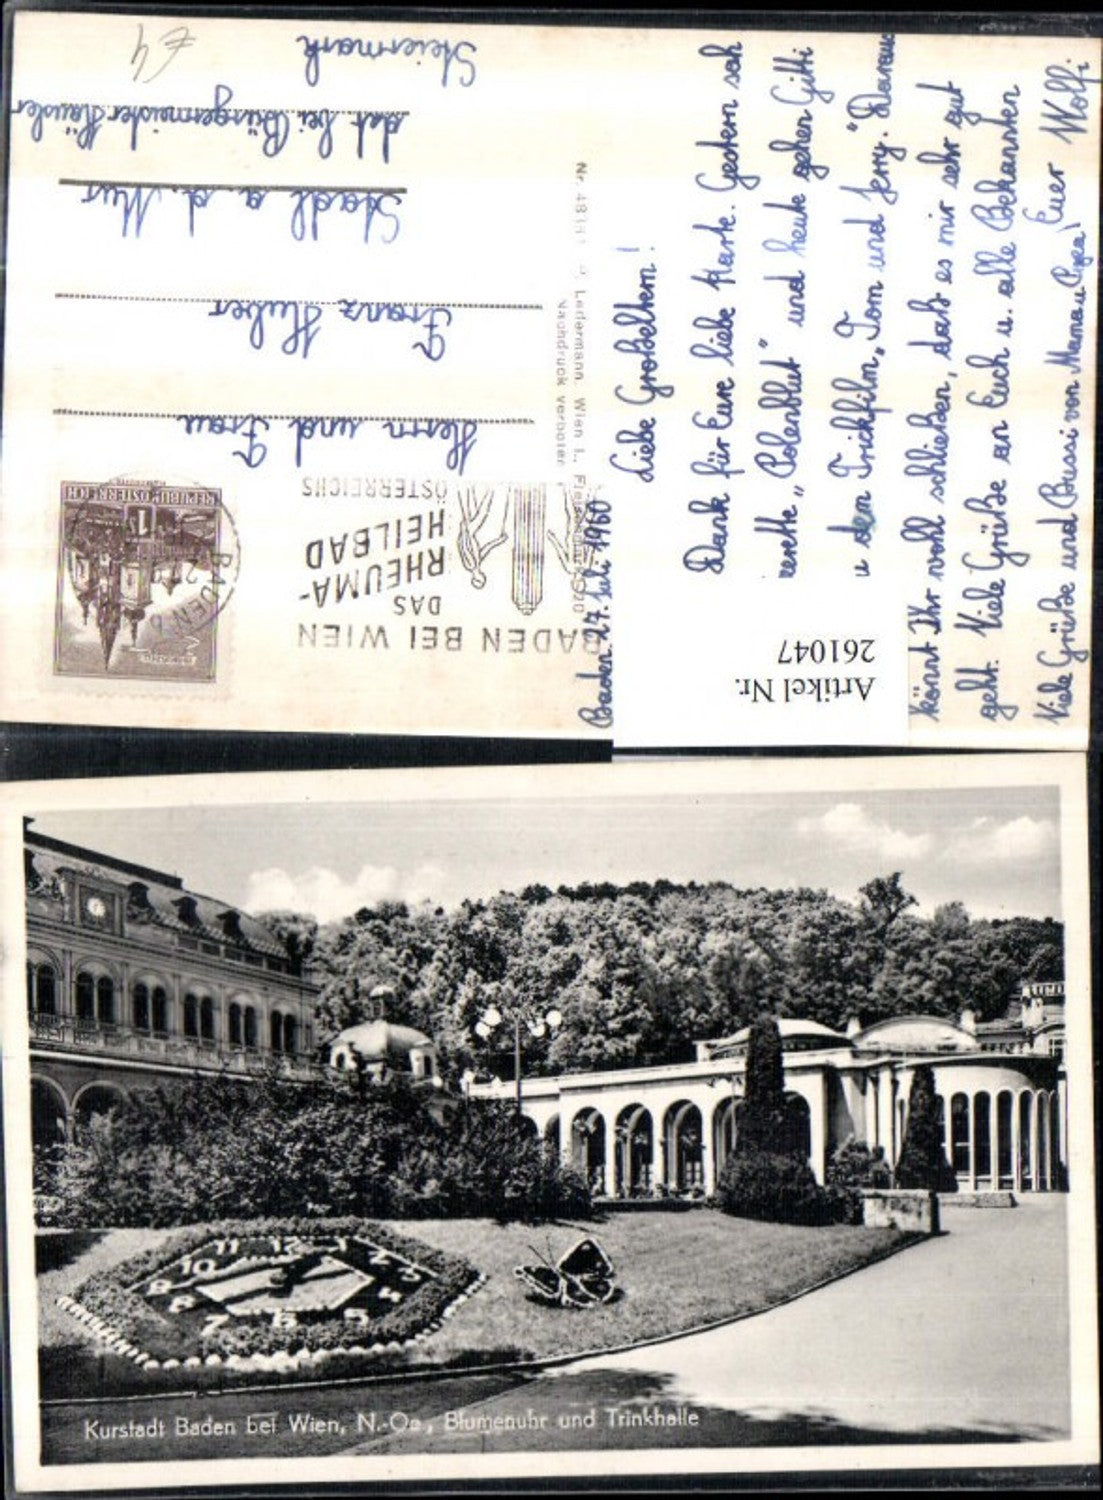 Baden 27. Juli 1960
Liebe Großeltern!
Dank für Eure liebe Karte. Gestern sah
„Polenblut" und heute gehen Gitti
u den Trickfilm „Tom und Jerry". Daraus
könnt Ihr wohl schließen, daß es mir sehr gut
geht. Viele Grüße an Euch u. alle Bekannten
Euer Wolfi
Viele Grüße und Bussi von Mama u. Papa!
BADEN BEI WIEN
DAS
RHEUMA-
HEILBAD
ÖSTERREICHS
REPUBLIK ÖSTERREICH
1
BADEN B
Herrn und Frau
Franz Huber
Stadl a. d. Mur
dzt. bei Bürgermeister Häusler
Steiermark
€4
P. Ledermann, Wien I.,
Nachdruck verboten
Artikel Nr.
261047
11 12 1 2 3 4 5 6 7 8 9 10
Kurstadt Baden bei Wien, N.-Oe., Blumenuhr und Trinkhalle